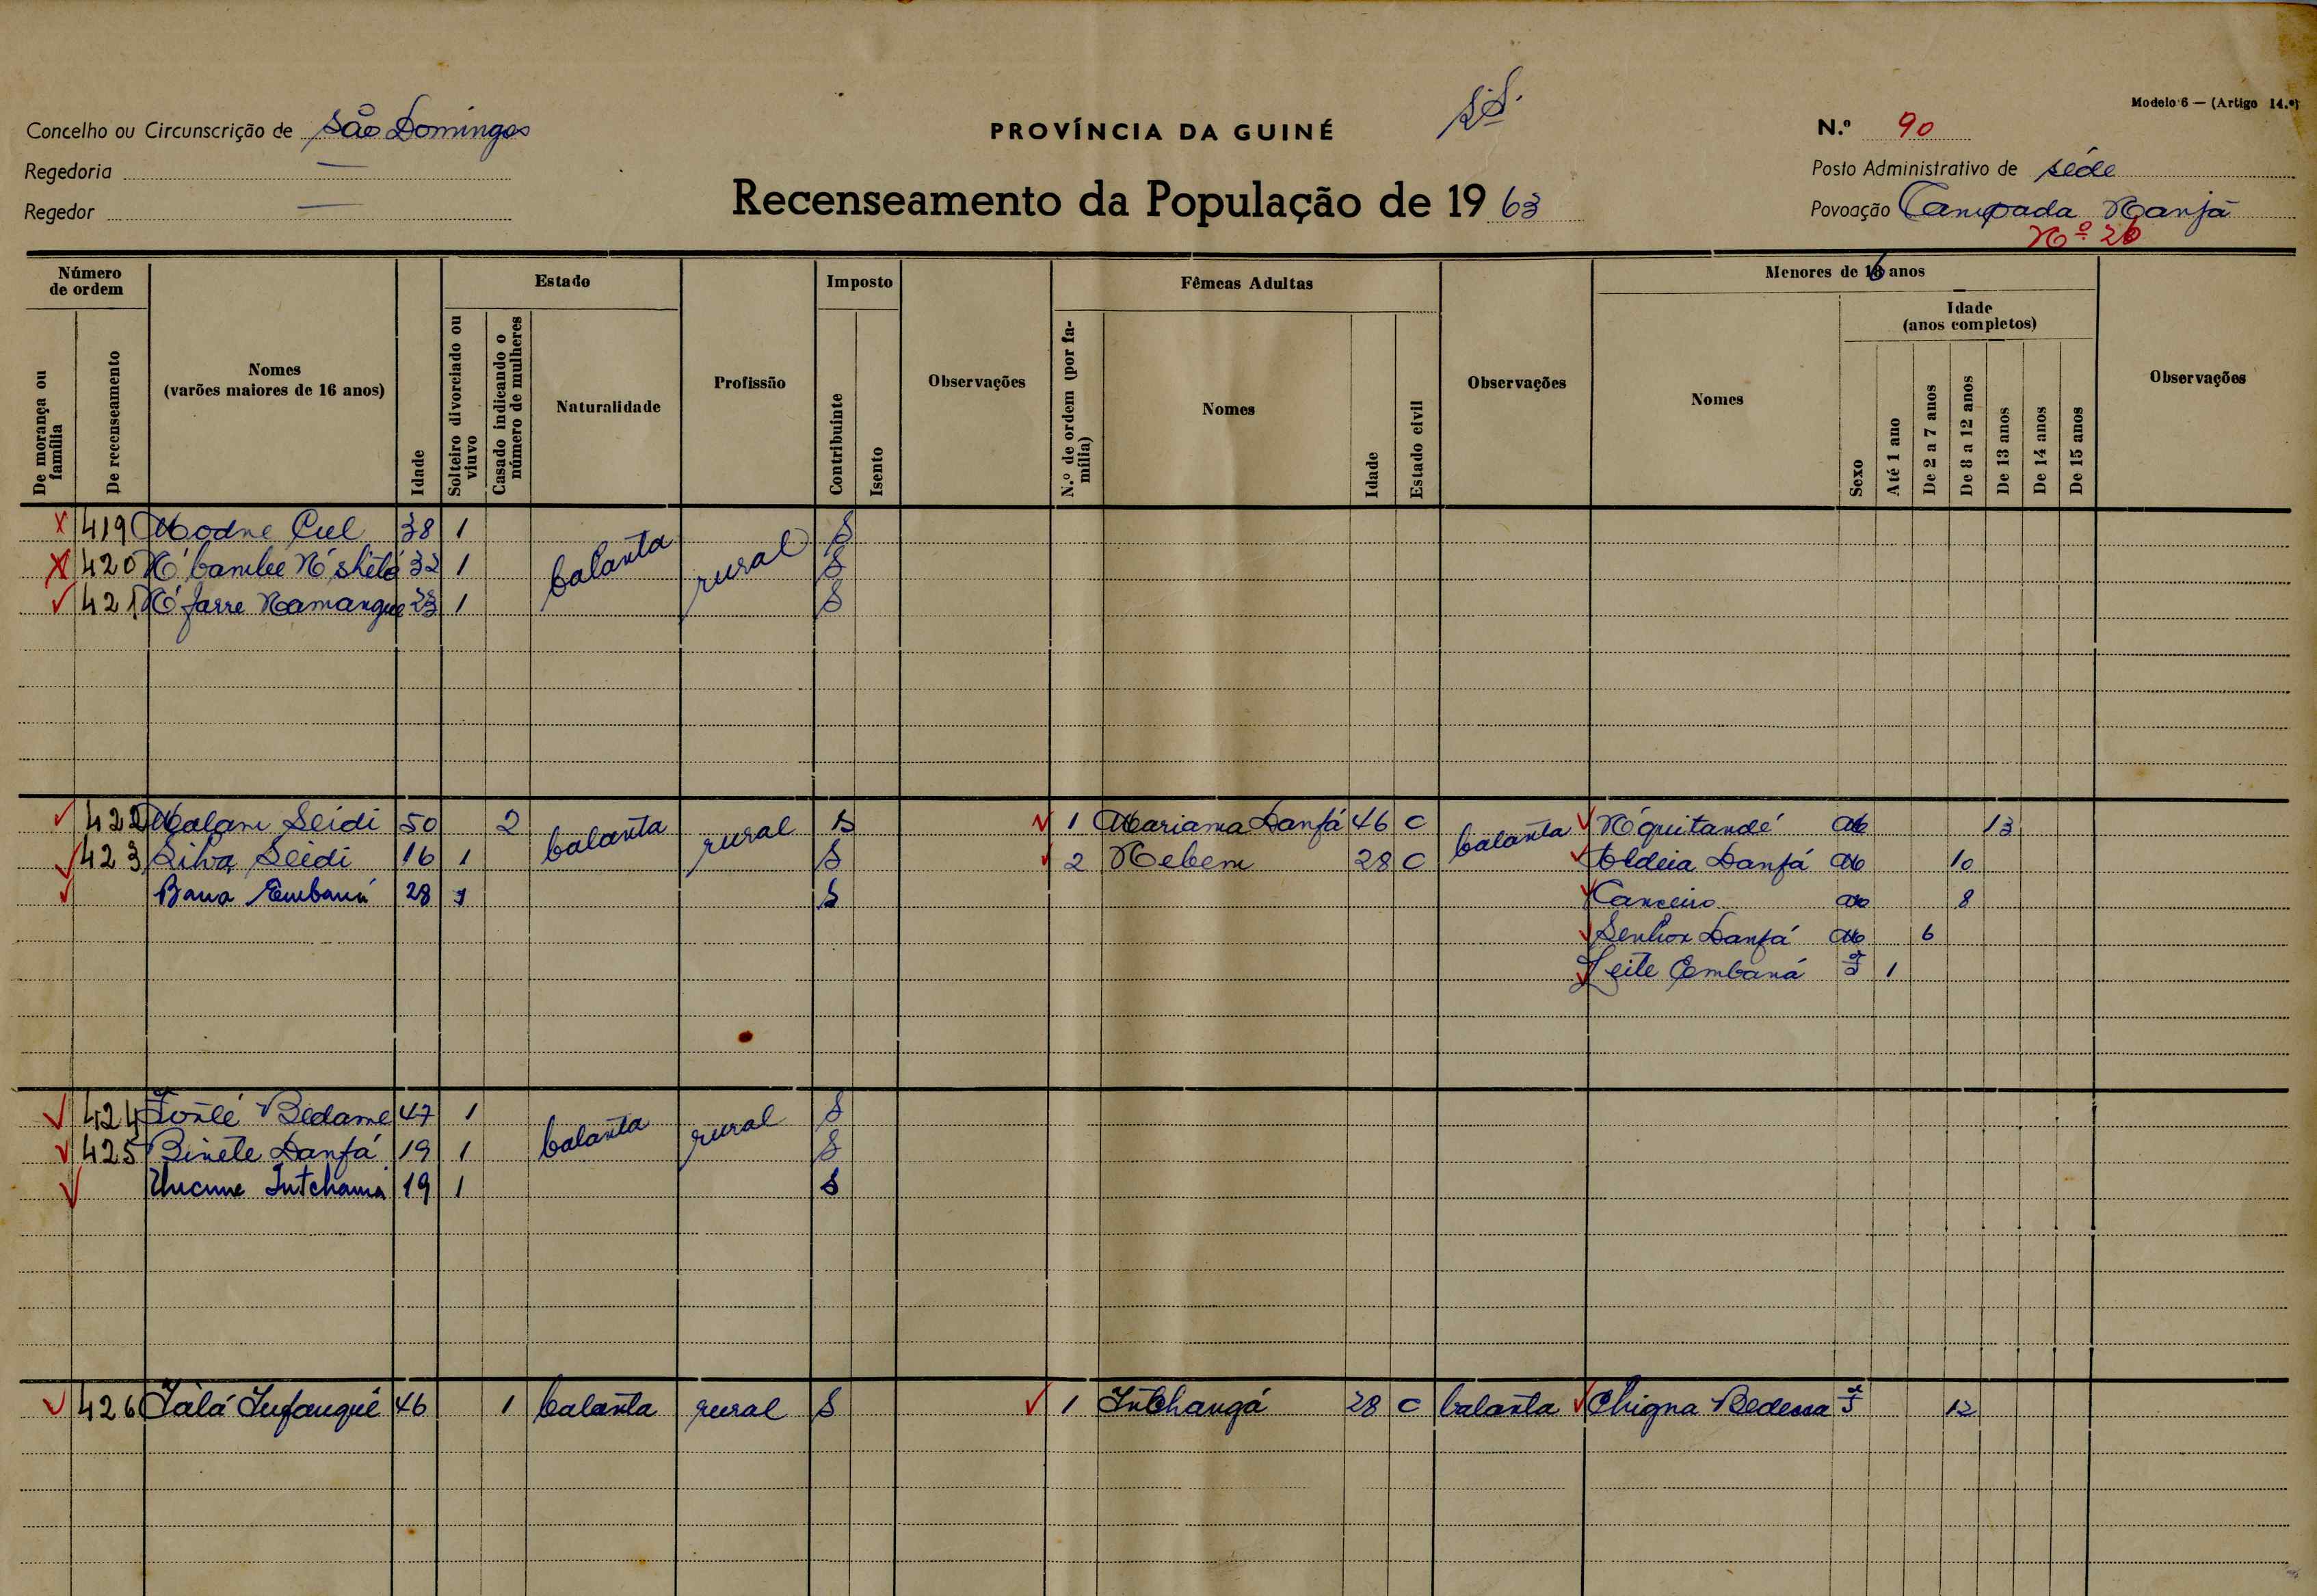 Modelo 6 — (Artigo 14.º)
Concelho ou Circunscrição de São Domingos
PROVÍNCIA DA GUINÉ
N.º 90
Regedoria —
Posto Administrativo de séde
Regedor —
Recenseamento da População de 1963
Povoação Campada Nanjá
Nº 26
Número de ordem
Estado
Imposto
Fêmeas Adultas
Menores de 16 anos
Idade
(anos completos)
De morança ou família
De recenseamento
Nomes
(varões maiores de 16 anos)
Idade
Solteiro divorciado ou viuvo
Casado indicando o número de mulheres
Naturalidade
Profissão
Contribuinte
Isento
Observações
N.º de ordem (por família)
Nomes
Idade
Estado civil
Observações
Nomes
Sexo
Até 1 ano
De 2 a 7 anos
De 8 a 12 anos
De 13 anos
De 14 anos
De 15 anos
Observações
419 Modne Cul 38 1 balanta rural S
420 N'bambe 32 1 S
421 N'farre Namangue 23 1 S
422 Malam Seidi 50 2 balanta rural S 1 Mariama Danfá 46 C balanta N'quitandé M 13
423 Silva Seidi 16 1 S 2 Nebem 28 C Aldeia Danfá M 10
Bana Embaná 28 1 S Canceiro M 8
Senhor Danfá M 6
Leite Embaná F 1
424 Bedame 47 1 balanta rural S
425 Binete Danfá 19 1 S
Intchamá 19 1 S
426 Iálá Infanguê 46 1 balanta rural S 1 Intchangá 28 C balanta Chigna F 12